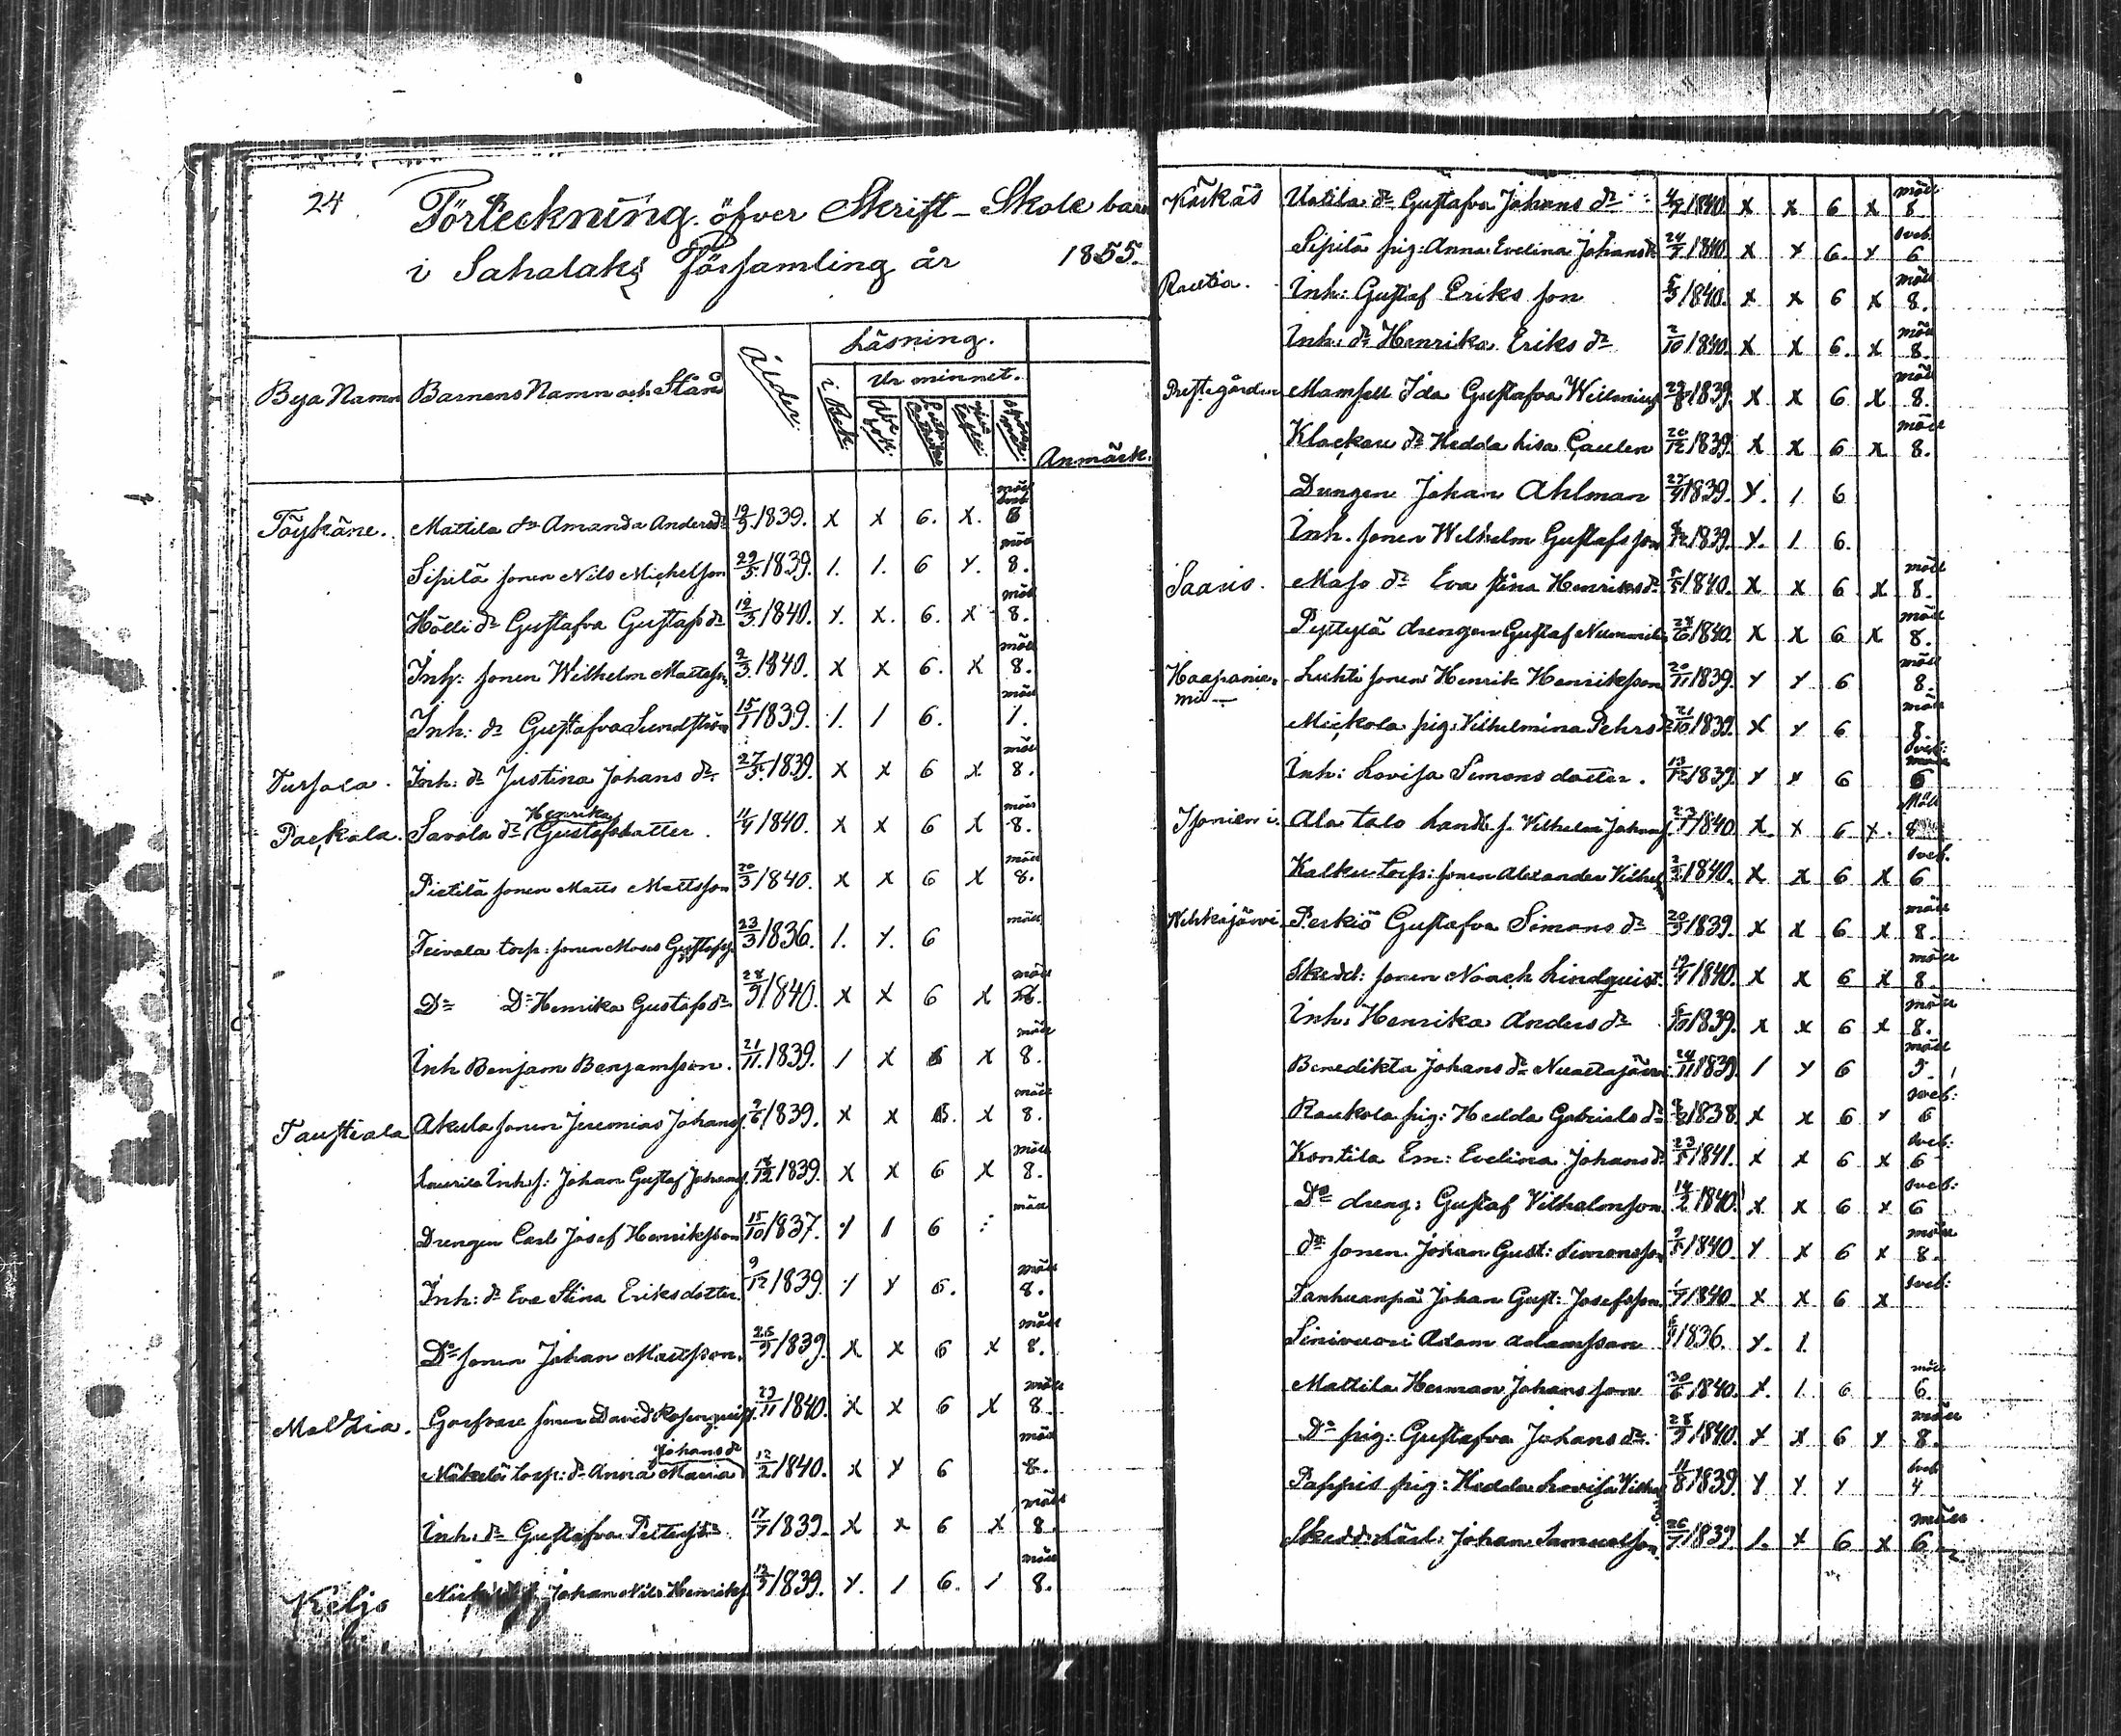 24. Förteckning öfver Skrift-Skole barn
i Sahalaks Församling år 1855.
Bya Namn Barnens Namn och Stånd Ålder Läsning.
i Bok Ur minnet. Anmärk.
Töykäne. Mattila dr Amanda Andersdr 19/9 1839. x x 6. x. möll 6
Sipilä sonen Nils Michelsson 29/5 1839. 1. 1. 6 y. möll 8.
Hölli dr Gustafva Gustafsdr 19/3 1840. y. x. 6. x möll 8.
Inh: sonen Wilhelm Mattsson 2/3 1840. x x 6. x möll 8.
Inh: dr Gustafva Lundström 15/7 1839. 1. 1 6. möll 1.
Tursola. Inh: dr Justina Johans dr 27/5 1839. x x 6 x möll 8.
Henrika
Packala. Savola dr Gustafsdotter. 11/4 1840. x x 6 x möll 8.
Pietilä sonen Matts Mattsson 20/3 1840. x x 6 x möll 8.
Teivala torp: sonen Moses Gustafss. 23/3 1836. 1. y. 6 möll
Do Do Henrika Gustafsdr 28/9 1840. x x 6 x möll
Inh Benjam Benjamsson. 21/11 1839. 1 x 6 x möll 8.
Taustiala Akula sonen Jeremias Johanss. 7/6 1839. x x 6. x möll 8.
Laurila Inh. s: Johan Gustaf Johanss. 1839. x x 6 x möll 8.
Drengen Carl Josef Henriksson 15/10 1837. y 1 6 möll
Inh: dr Eva Stina Eriksdotter. 9/12 1839. y y 6. möll 8.
Do sonen Johan Mattsson. 26/9 1839. x x 6 x möll 8.
Moltzia. Gorsvare sonen David Rosenqvist 29/11 1840. x x 6 x möll 8.
Johans dr
Mäkelä torp: dr Anna Maria 12/2 1840. x y 6 möll 8.
Inh: dr Gustafva Pettersdr 17/7 1839. x x 6 x möll 8
Keljo Johan Nils Henrikss. 12/9 1839. y. 1 6. 1 möll 8.
Kärkäs Uotila dr Gustafva Johans dr 4/9 1840. x x 6 x möll 8
Sipilä pig: Anna Evelina Johansdr 24/7 1840. x y 6. y sveb. 6
Rautia. Inh: Gustaf Eriks son 5/5 1840. x x 6 x möll 8.
Inh: dr Henrika Eriks dr 2/10 1840. x x 6. x möll 8.
Prestegården Mamsell Ida Gustafva Willenius 29/8 1839. x x 6 x möll 8.
Klackare dr Hedda Lisa Caulen 20/12 1839. x x 6 x möll 8.
Drengen Johan Ahlman 1839. y. 1 6
Inh. sonen Wilhelm Gustafsson 1839. y. 1 6.
Saaris. Maso dr Eva Stina Henriksdr 1840. x x 6 x möll 8.
Pyttylä drengen Gustaf Nummelin 1840. x x 6 x möll 8.
Haapanie- Luhti sonen Henrik Henriksson 20/11 1839. y y 6 möll 8.
mi Mickola pig: Vilhelmina Pehrs dr 21/10 1839. x y 6 möll 8.
Inh: Lovisa Simons dotter. 13/12 1839. y x 6 sveb: 6
Isoniemi. Ala talo Landb. s. Vilhelm Johanss. 1840. x. x 6 x. Möll 8
Kalku torp: sonen Alexander Vilhelm 1840. x x 6 x sveb. 6
Wehkajärvi Perkiö Gustafva Simons dr 20/5 1839. x x 6 x möll 8.
Skedd: sonen Noach Lindquist. 19/4 1840. x x 6 x möll 8.
Inh: Henrika Anders dr 1839. x x 6 x möll 8.
Benedikta Johans dr Nuottajärvi 24/11 1839. 1 y 6 möll 5.
Raukola pig: Hedda Gabriels dr 1838. x x 6 y sveb: 6
Kontila Em: Evelina Johans dr 23/5 1841. x x 6 x sveb: 6
Do dreng: Gustaf Vilhelmsson 14/2 1840. x x 6 x sveb: 6
do sonen Johan Gust: Simonsson 1840. y x 6 x möll 8.
Tanhuanpä Johan Gust: Josefsson. 1/7 1840. x x 6 x sveb:
Sinivuori Adam Adamsson 1836. y. 1.
Mattila Herman Johans son 30/6 1840. x. 1. 6 möll 6.
Do pig: Gustafva Johans dr. 28/9 1840. x x 6 y möll 8.
Pappis pig: Hedda Lovisa 11/8 1839. y y y sveb 4
Skedd: Karl: Johan Samuelsson. 26/7 1839. 1. x 6 x möll 6